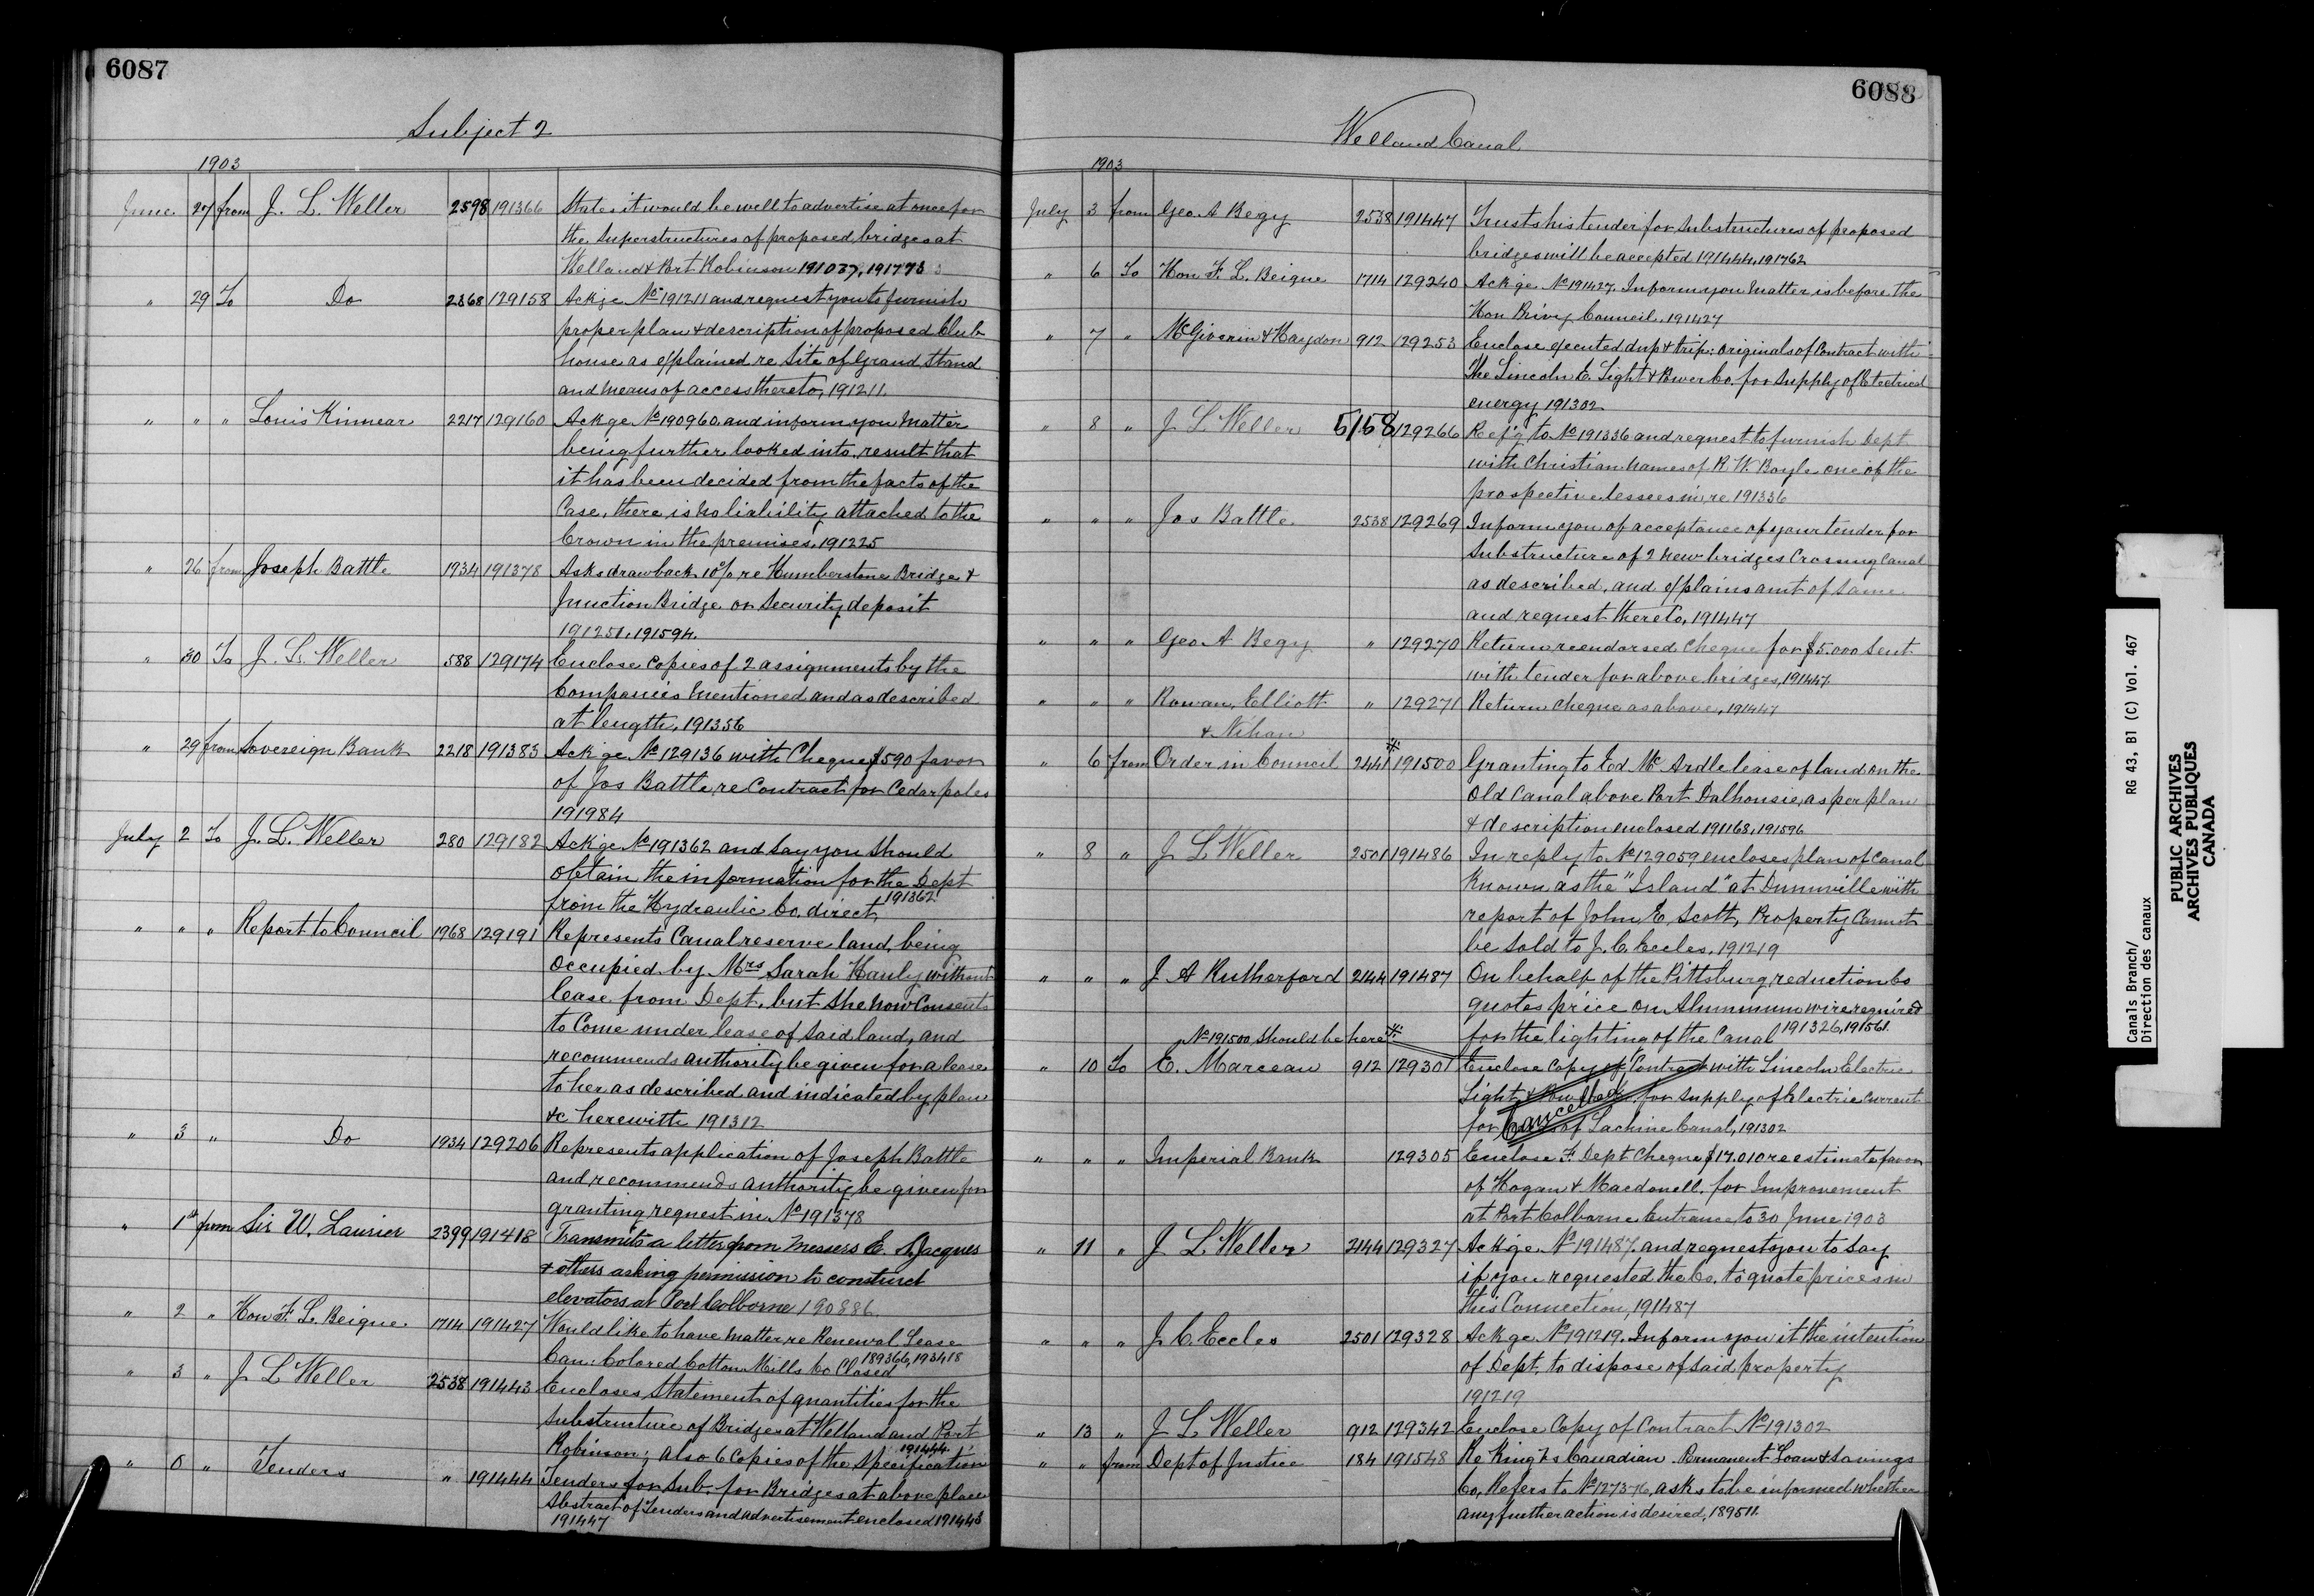 6087
Subject 2
1903
June 27 from J. L. Weller 2598 191366 States it would be well to advertise at once for
the Superstructures of proposed bridges at
Welland & Port Robinson 191037, 191773
" 29 To Do 2368 129158 Ackge No 191211 and request you to furnish
proper plan & description of proposed Club
house as explained re Site of Grand Stand
and means of access thereto, 191211.
" " " Louis Kinnear 2217 129160 Ackge No 190960 and inform you Matter
being further looked into, result that
it has been decided from the facts of the
Case, there is no liability attached to the
Crown in the premises, 191225
" 26 from Joseph Battle 1934 191378 Asks drawback 10% re Humberstone Bridge &
Junction Bridge or Security deposit
191251, 191594.
" 30 To J. L. Weller 588 129174 Enclose Copies of 2 assignments by the
Companies mentioned and as described
at length, 191356
" 29 from Sovereign Bank 2218 191383 Ackge No 129136 with Cheque $590 favor
of Jos Battle, re Contract for Cedar poles
191984
July 2 To J. L. Weller 280 129182 Ackge No 191362 and say you should
obtain the information for the Dept
from the Hydraulic Co. direct, 191362
" " " Report to Council 1968 129191 Represents Canal reserve land, being
occupied by Mrs Sarah Hanly without
lease from Dept. but she now Consents
to Come under lease of said land, and
recommends authority be given for a lease
to her as described and indicated by plan
&c herewith 191312
" 3 " Do 1934 129206 Represents application of Joseph Battle
and recommends authority be given for
granting request in No 191378
" 1st from Sir W. Laurier 2399 191418 Transmits a letter from Messers E. St Jacques
& others asking permission to construct
elevators at Port Colborne 190886
" 2 " Hon F. L. Beique 1714 191427 Would like to have matter re Renewal Lease
Can: Colored Cotton Mills Co Closed 189366, 193418
" 3 " J L Weller 2538 191443 Encloses Statement of quantities for the
substructure of Bridges at Welland and Port
Robinson; also 6 Copies of the Specification 191444
" 6 " Tenders " 191444 Tenders for Sub- for Bridges at above place
Abstract of Tenders and advertisement enclosed 191443
191447
6088
Welland Canal
1903
July 3 from Geo. A Begy 2538 191447 Trusts his tender for Substructures of proposed
bridges will be accepted 191444, 191762
" 6 To Hon F. L. Beique 1714 129240 Ackge No 191427. Inform you Matter is before the
Hon Privy Council, 191427
" 7 " McGiverin & Haydon 912 129253 Enclose executed dup & trip: originals of Contract with
The Lincoln E. Light & Power Co. for Supply of Electrical
energy 191302
" 8 " J L Weller 5158 129266 Ref'g to No 191336 and request to furnish Dept
with Christian names of R. W Boyle one of the
prospective lessees in re 191336
" " " Jos Battle 2538 129269 Inform you of acceptance of your tender for
Substructure of 2 new bridges Crossing Canal
as described, and explains amt of same
and request thereto, 191447
" " " Geo. A Begy " 129270 Return reendorsed Cheque for $5.000 Sent
with tender for above bridges, 191447.
" " " Rowan, Elliott " 129271 Return Cheque as above, 191447
& Nihan
" 6 from Order in Council 2441 * 191500 Granting to Ed McArdle lease of land on the
Old Canal above Port Dalhousie, as per plan
& description enclosed 191163, 191596
" 8 " J L Weller 2501 191486 In reply to No 129059 encloses plan of Canal
Known as the "Island" at Dunnville with
report of John E. Scott, Property Cannot
be sold to J. C. Eccles, 191219
" " " J A Rutherford 2144 191487 On behalf of the Pittsburg reduction Co
quotes price on Aluminum wire required
No 191500, should be here * for the lighting of the Canal 191326, 191561
" 10 To E. Marceau 912 129301 Enclose Copy of Contract with Lincoln Electric
Light & Power Co. for Supply of Electric Current
for of Lachine Canal, 191302
Cancelled
" " " Imperial Bank 129305 Enclose F. Dept Cheque $17.010 re estimate favor
of Hogan & Macdonell. for Improvement
at Port Colborne Entrance to 30 June 1903
" 11 " J L Weller 2144 129327 Ackge No 191487. and request you to say
if you requested the Co. to quote prices in
this Connection, 191487
" " " J. C. Eccles 2501 129328 Ackge No 191219. Inform you it the intention
of Dept. to dispose of said property
191219
" 13 " J L Weller 912 129342 Enclose Copy of Contract No 191302
" " from Dept of Justice 184 191548 Re King vs Canadian Permanent Loan & Savings
Co, Refers to No 127376, asks to be informed whether
any further action is desired, 189511.
Canals Branch/ RG 43, B1 (C) Vol. 467
Direction des canaux
PUBLIC ARCHIVES
ARCHIVES PUBLIQUES
CANADA